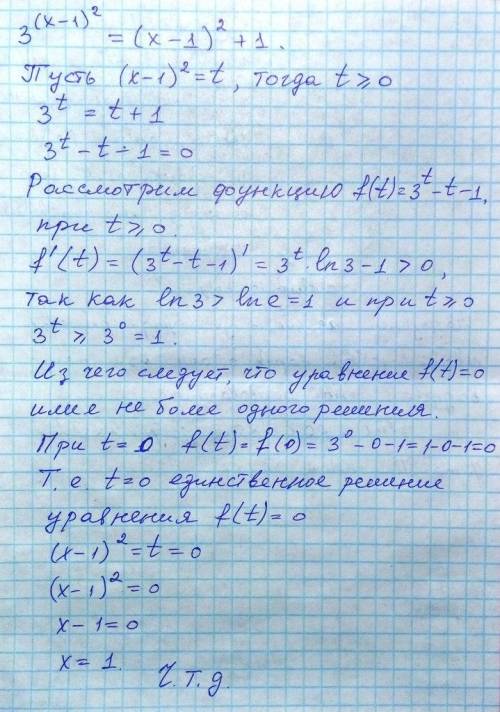 3^(x-1)^2 = (x-1)^2 + 1.
Пусть (x-1)^2 = t, тогда t ⩾ 0
3^t = t + 1
3^t - t - 1 = 0
Рассмотрим функцию f(t) = 3^t - t - 1,
при t ⩾ 0.
f'(t) = (3^t - t - 1)' = 3^t · ln3 - 1 > 0,
так как ln3 > ln e = 1 и при t ⩾ 0
3^t ⩾ 3^0 = 1.
Из чего следует, что уравнение f(t) = 0
имеет не более одного решения.
При t = 0 f(t) = f(0) = 3^0 - 0 - 1 = 1 - 0 - 1 = 0
Т.е. t = 0 единственное решение
уравнения f(t) = 0
(x-1)^2 = t = 0
(x-1)^2 = 0
x - 1 = 0
x = 1.
Ч.Т.Д.